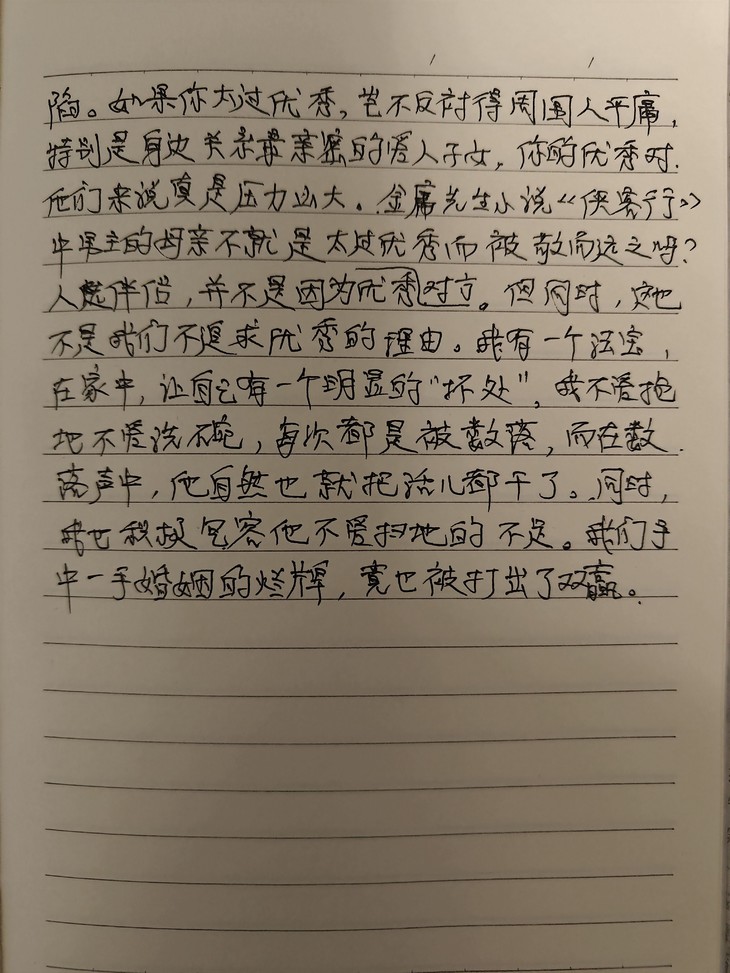 陷。如果你太过优秀，岂不反衬得周围人平庸，
特别是身边关系最亲密的爱人子女，你的优秀对
他们来说真是压力山大。金庸先生小说《侠客行》
中男主的母亲不就是太过优秀而被敬而远之吗？
人選伴侣，并不是因为优秀对立。但同时，这也
不是我们不追求优秀的理由。我有一个法宝，
在家中，让自己有一个明显的“坏处”，我不爱拖
地不爱洗碗，每次都是被数落，而在数
落声中，他自然也就把活儿都干了。同时，
我也积极包容他不爱扫地的不足。我们手
中一手婚姻的烂牌，竟也被打出了双赢。